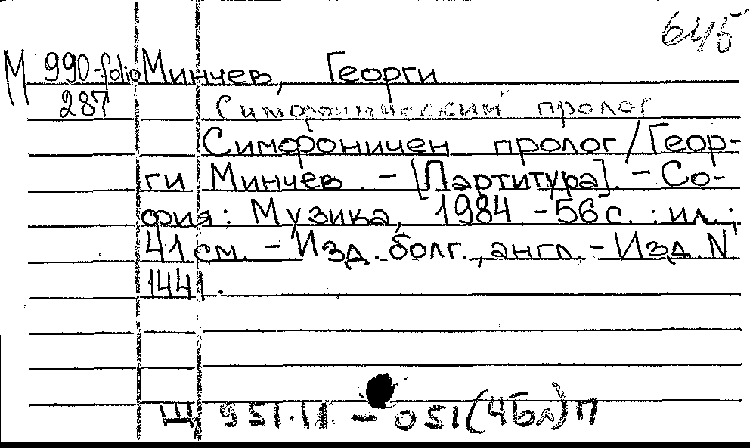 645
М 990-folio Минчев, Георги
287 Симфонический пролог
Симфоничен пролог / Геор-
ги Минчев. - [Партитура]. - Со-
фия: Музика, 1984 - 56 с. : ил.;
41 см. - Изд. болг., англ. - Изд. N
1441.
Щ 951.11 - 051(4Бл)П